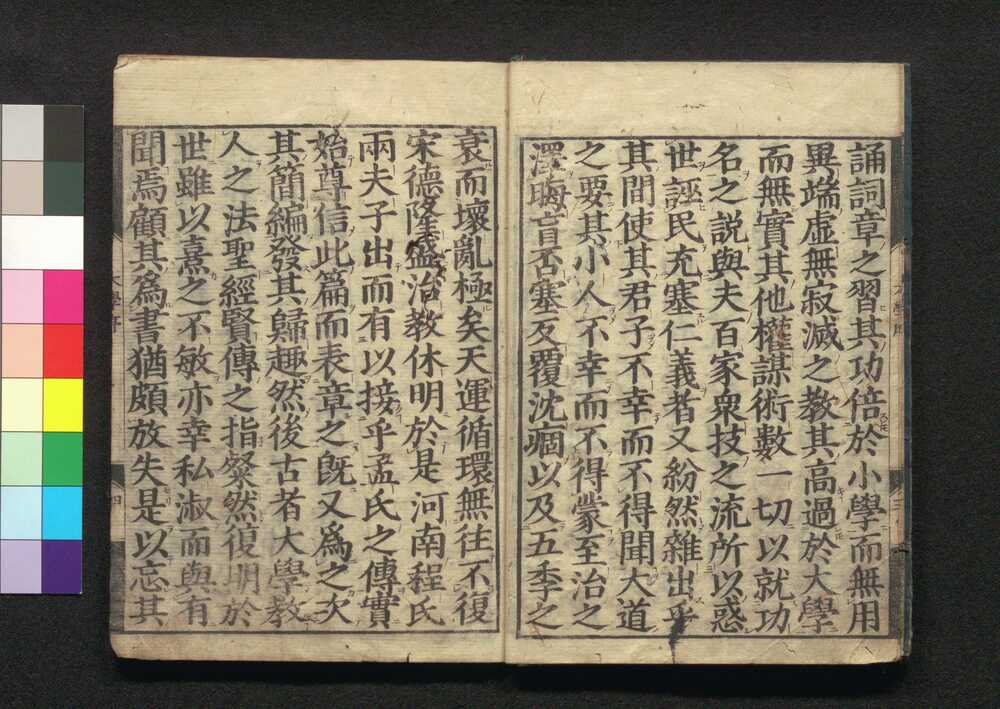 誦詞章之習其功倍於小學而無用
異端虛無寂滅之教其高過於大學
而無實其他權謀術數一切以就功
名之說與夫百家衆技之流所以惑
世誣民充塞仁義者又紛然雜出乎
其間使其君子不幸而不得聞大道
之要其小人不幸而不得蒙至治之
澤晦盲否塞反覆沈痼以及五季之
衰而壞亂極矣天運循環無往不復
宋德隆盛治教休明於是河南程氏
兩夫子出而有以接乎孟氏之傳實
始尊信此篇而表章之旣又爲之次
其簡編發其歸趣然後古者大學教
人之法聖經賢傳之指粲然復明於
世雖以熹之不敏亦幸私淑而與有
聞焉顧其爲書猶頗放失是以忘其
四